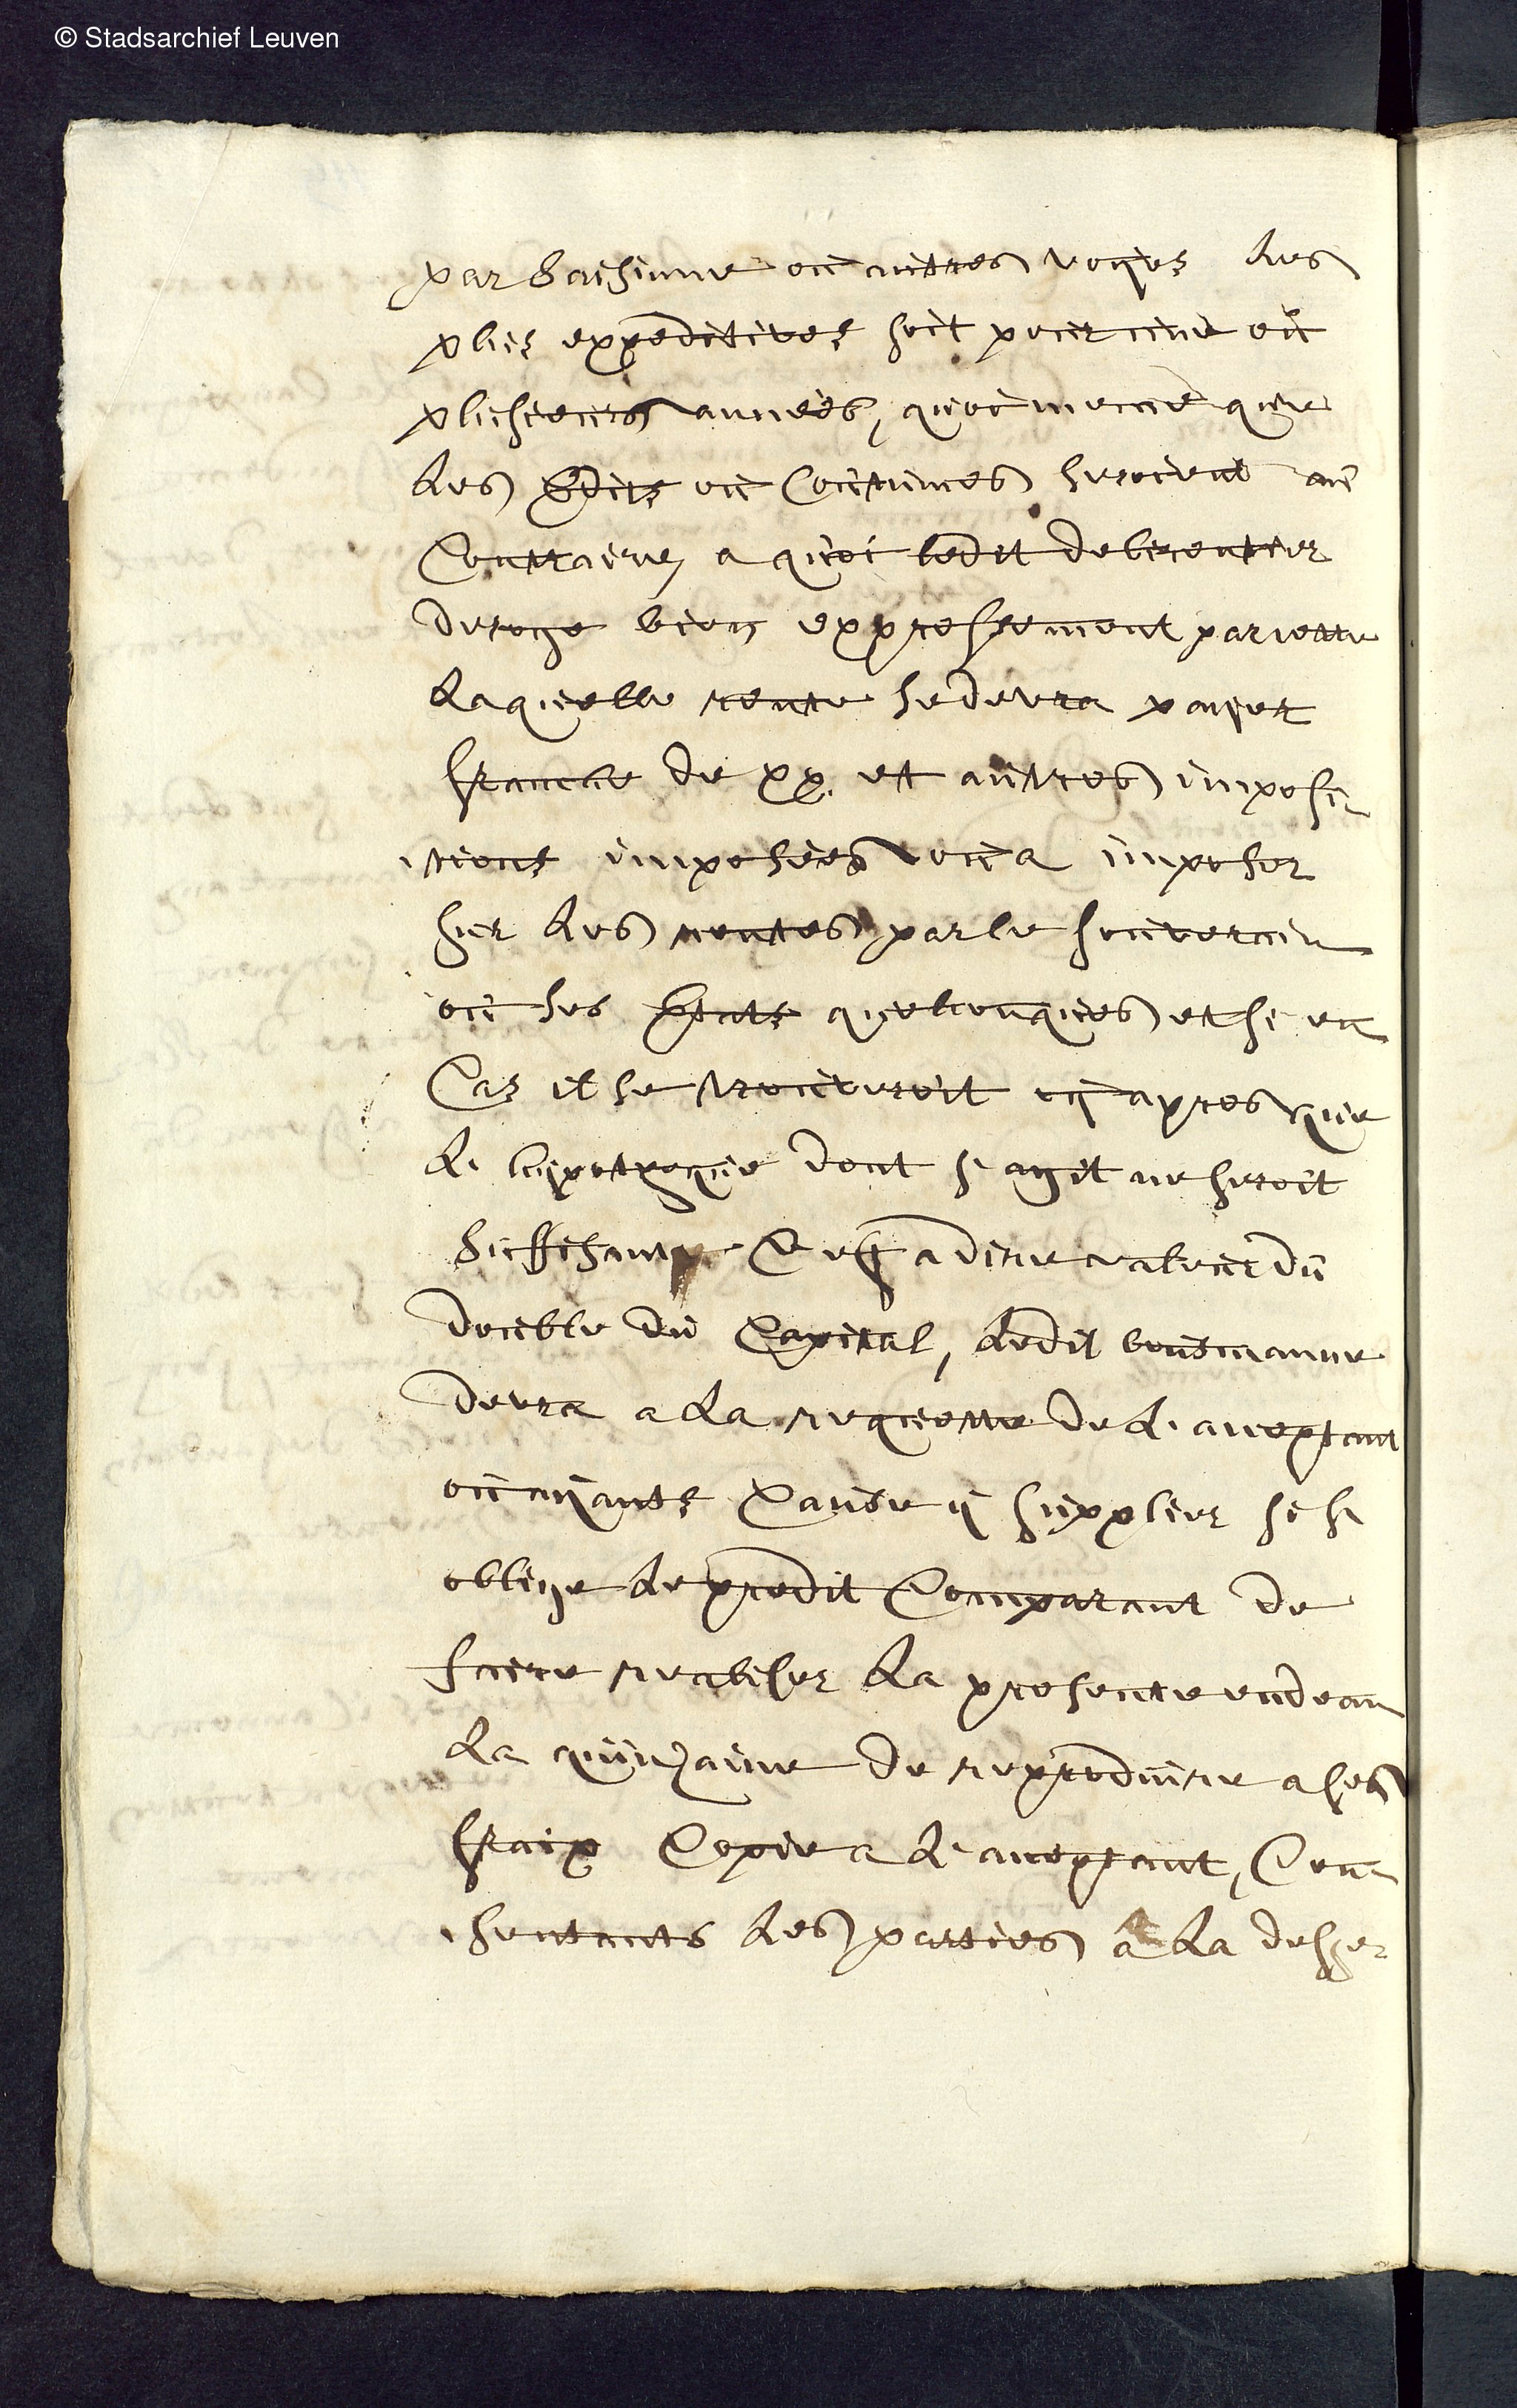 © Stadsarchief Leuven
par saisinne ou autres voyes les
plus expeditives soit pour une ou
plusieurs années, quoi mecme que
les Edits ou Coutumes seroient au
Contraire, a quoi ledit debirentier
deroge bien expressement par cette
Laquelle rente se devra payer
franche de xx. et autres imposi-
tions imposées ou a imposer
sur les rentes par le souverain
ou ses Etats quelconques et si en
Cas il se trouveroit cy apres que
L'hypotheque dont s'agit ne seroit
suffisante C'est a dire valeur du
double du Capital, Ledit
devra a La requette de L'acceptant
ou ayants Cause y suppleer si s'
oblige Le predit Comparant de
faire realiser La presente endean
La quinzaine de reproduire a ses
fraix Copie a L'acceptant, Con-
sentants Les parties a La desser